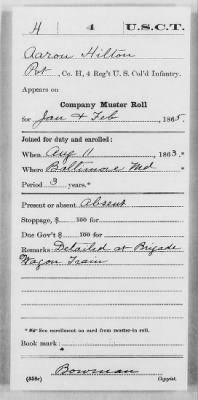 H 4 U.S.C.T.
Aaron Hilton
Pvt, Co. H, 4 Reg't U. S. Col'd Infantry.
Appears on
Company Muster Roll
for Jan & Feb, 1865.
Joined for duty and enrolled:
When Aug 11, 1863.*
Where Baltimore Md *
Period 3 years.*
Present or absent Absent
Stoppage, $ 100 for
Due Gov't $ 100 for
Remarks: Detailed at Brigade
Wagon Train
* See enrollment on card from muster-in roll.
Book mark:
Bowman
(858c) Copyist.